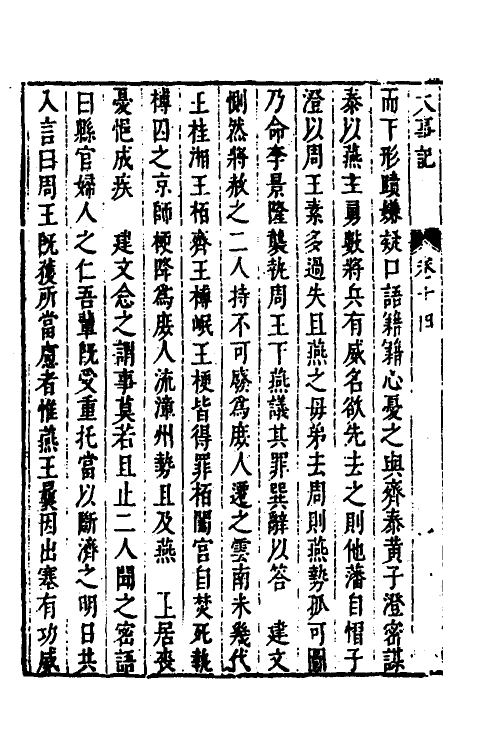 大事記 卷十四
而下形蹟嫌疑口語籍籍心憂之與齊泰黃子澄密謀
泰以燕主勇數將兵有威名欲先去之則他藩自㥽子
澄以周王素多過失且燕之毋弟去周則燕勢孤可圖
乃命李景隆襲執周王下燕議其罪巽辭以答 建文
惻然將赦之二人持不可廢爲庻人遷之雲南未幾代
王桂湘王栢齊王榑岷王梗皆得罪栢闔宮自焚死執
榑囚之京師梗降爲庻人流漳州勢且及燕 上居喪
憂悒成疾 建文念之謂事莫若且止二人聞之密語
曰縣官婦人之仁吾輩旣受重托當以斷濟之明日共
入言曰周王旣獲所當慮者惟燕王曩因出塞有功威